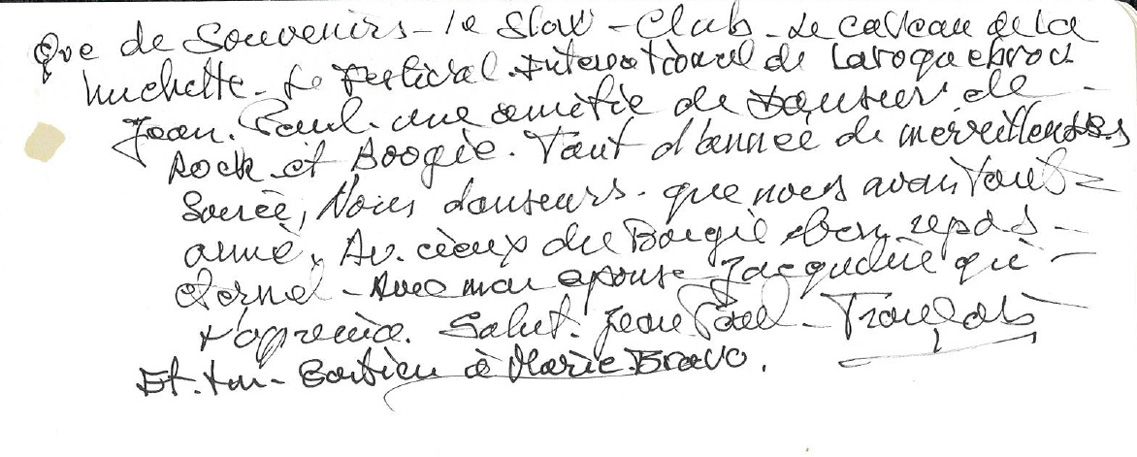 Que de Souvenirs - le Slow - Club - Le Caveau de la
huchette - Le Festival International de Laroquebrou
Jean. Paul. une amitié de danseur de
Rock et Boogie. Tant d'année de merveilleuses
Soirée, Nous danseurs. que nous avons tant
aimé. Au cieux du Boogie bon repos
éternel - Avec mon épouse Jacqueline qui
t'apprécia. Salut. Jean Paul - François
Et. un - Soutien à Marie. Bravo.